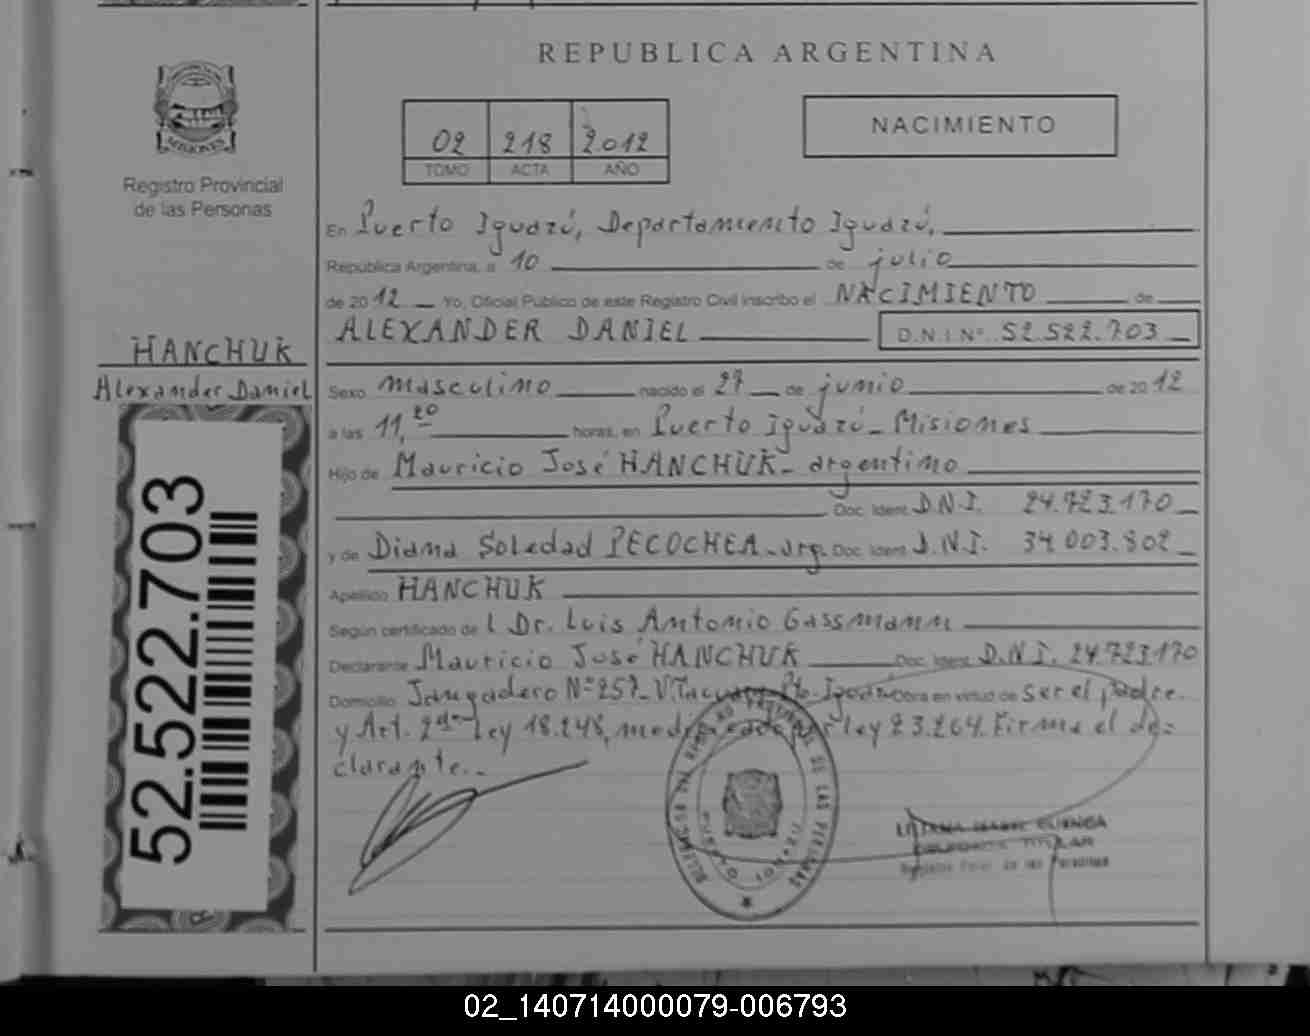 REPUBLICA ARGENTINA
MISIONES
Registro Provincial
de las Personas
02 218 2.012
TOMO ACTA AÑO
NACIMIENTO
En Puerto Iguazú, Departamento Iguazú,
República Argentina, a 10 de julio
de 2012 Yo, Oficial Público de este Registro Civil inscribo el NACIMIENTO de
ALEXANDER DANIEL D.N.I.Nº 52.522.703
HANCHUK
Alexander Daniel
52.522.703
Sexo masculino nacido el 27 de junio de 2012
a las 11,20 horas, en Puerto Iguazú - Misiones
Hijo de Mauricio José HANCHUK - argentino
Doc. Ident. D.N.I. 24.723.170
y de Diana Soledad PECOCHEA - arg. Doc. Ident. D.N.I. 34.003.802
Apellido HANCHUK
Según certificado de l Dr. Luis Antonio Gassmann
Declarante Mauricio José HANCHUK Doc. Ident. D.N.I. 24.723.170
Domicilio Jangadero Nº 257 - Pto. Iguazú Obra en virtud de ser el padre
y Art. 2do ley 18.248, modificado por ley 23.264. Firma el de=
clarante.-
REGISTRO PROVINCIAL DE LAS PERSONAS
LILIANA ISABEL CUENCA
DELEGADA TITULAR
Registro Pcial. de las Personas
02_140714000079-006793